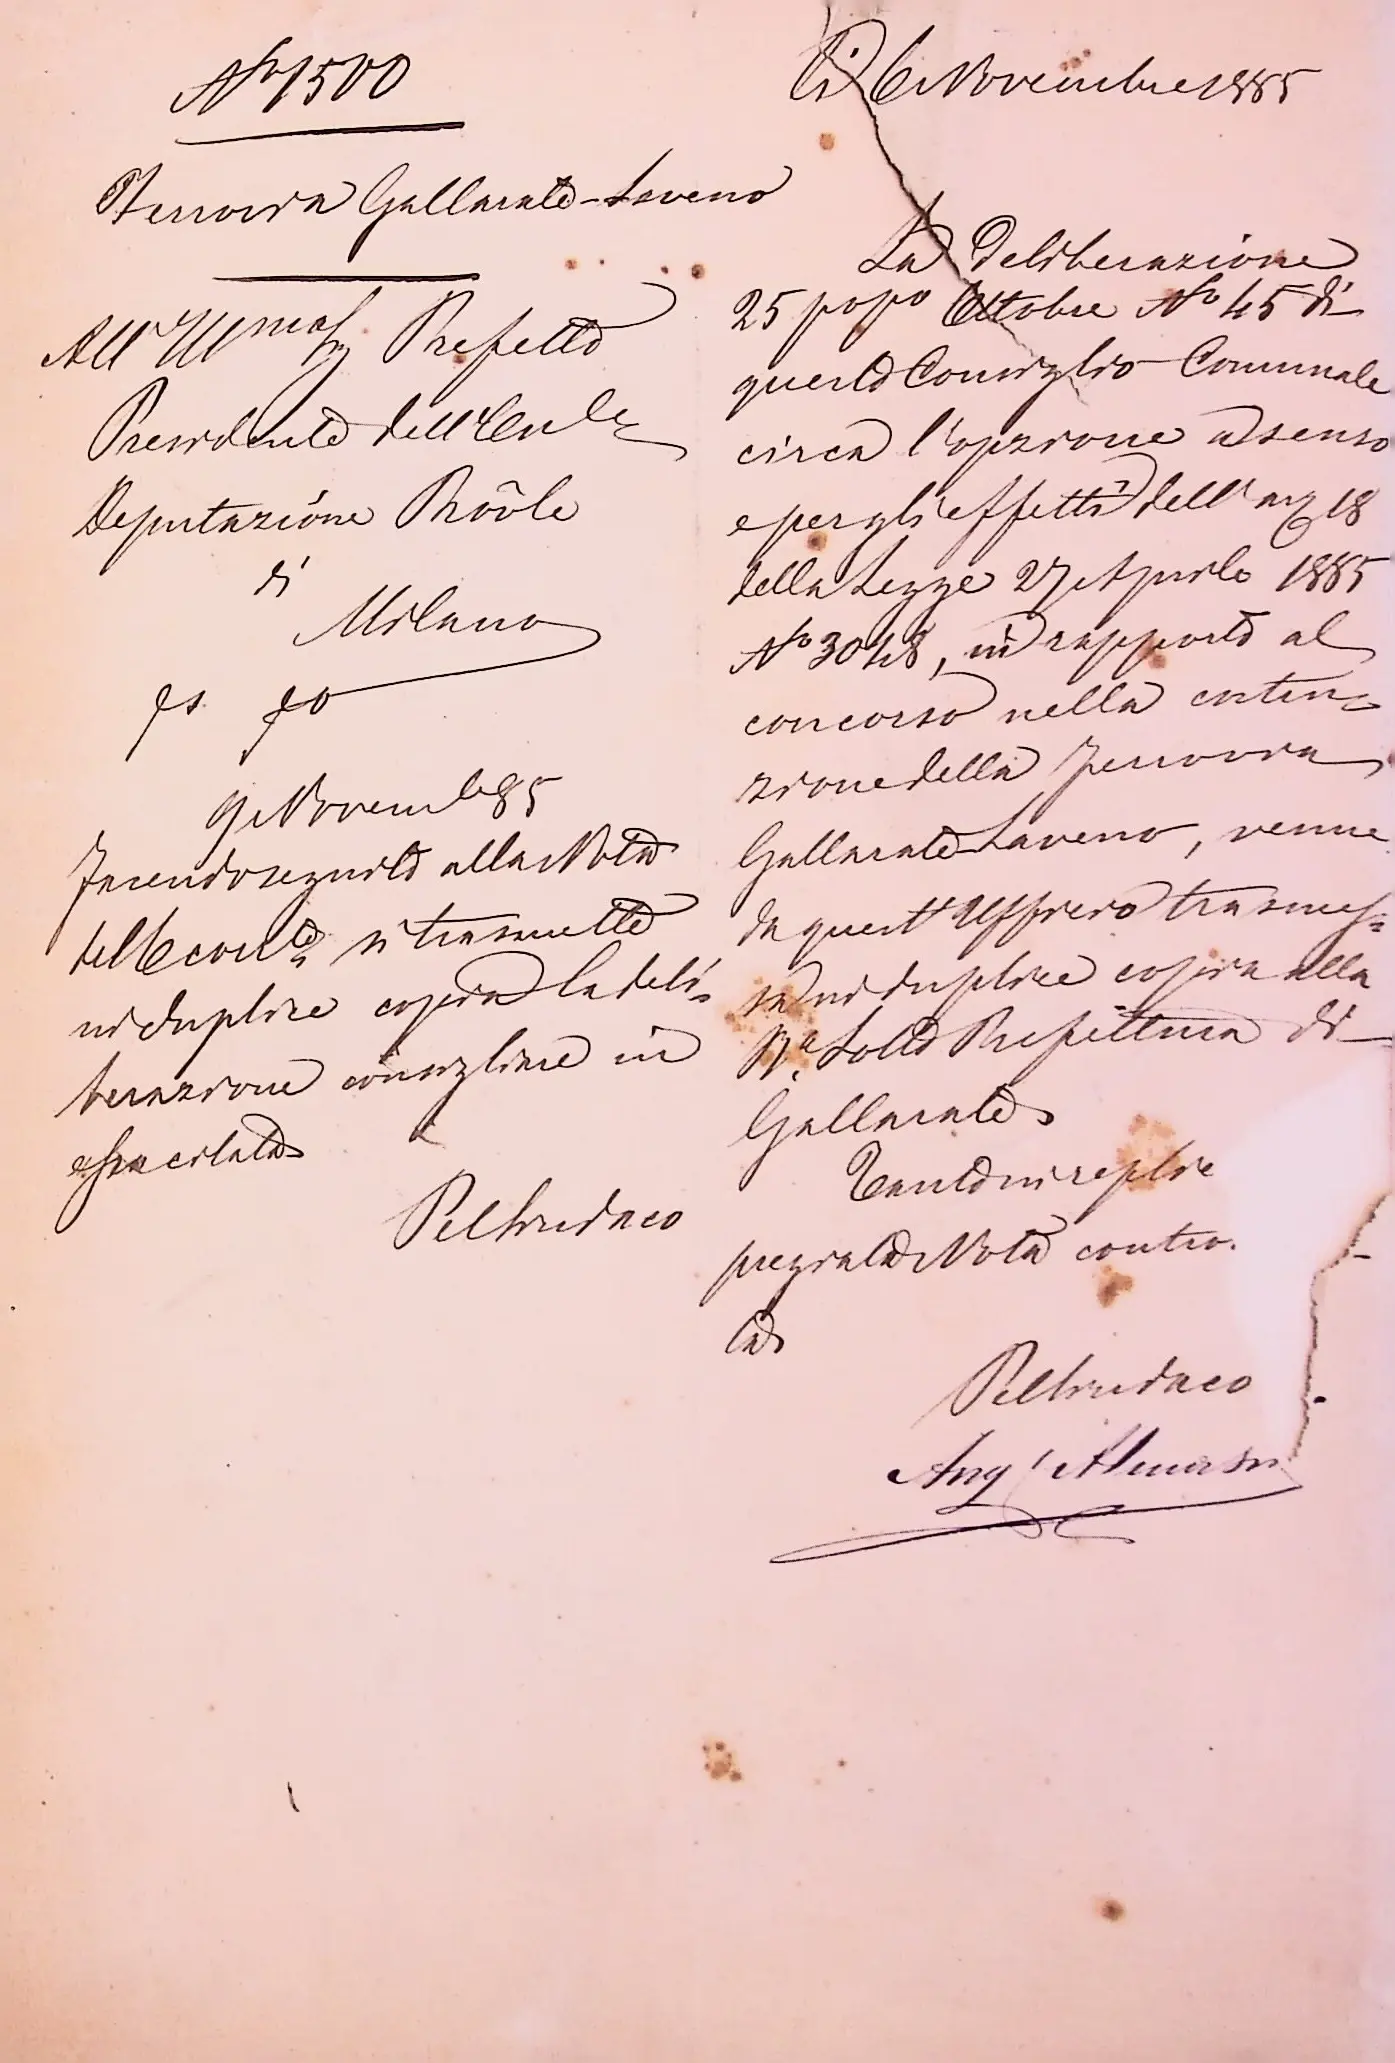 N° 1500
Ferrovia Gallarate-Laveno
All' Ill.mo Sig. Prefetto
Presidente dell'
Deputazione Prov.le
di
Milano
9 Novembre 85
Facendo seguito alla Nota
del 6 corr.te si trasmette
in duplice copia la deli=
berazione consigliare in
essa citata
Pel Sindaco
Li 6 Novembre 1885
La Deliberazione
25 p.o p.o Ottobre N° 45 di
questo Consiglio Comunale
circa l'opzione a senso
e per gli effetti dell' art 18
della Legge 27 Aprile 1885
N° 3048, in rapporto al
concorso nella costru=
zione della Ferrovia
Gallarate Laveno, venne
da quest' Ufficio trasmes=
sa in duplice copia alla
R.a Sotto Prefettura di
Gallarate
Tanto in replica
pregiata Nota contro.
ta
Pel Sindaco
Ang